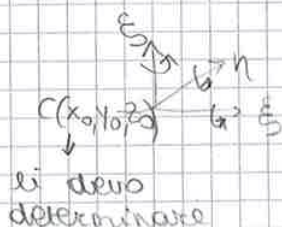 ζ
η
C(x₀,y₀,z₀) ξ
li devo
determinare